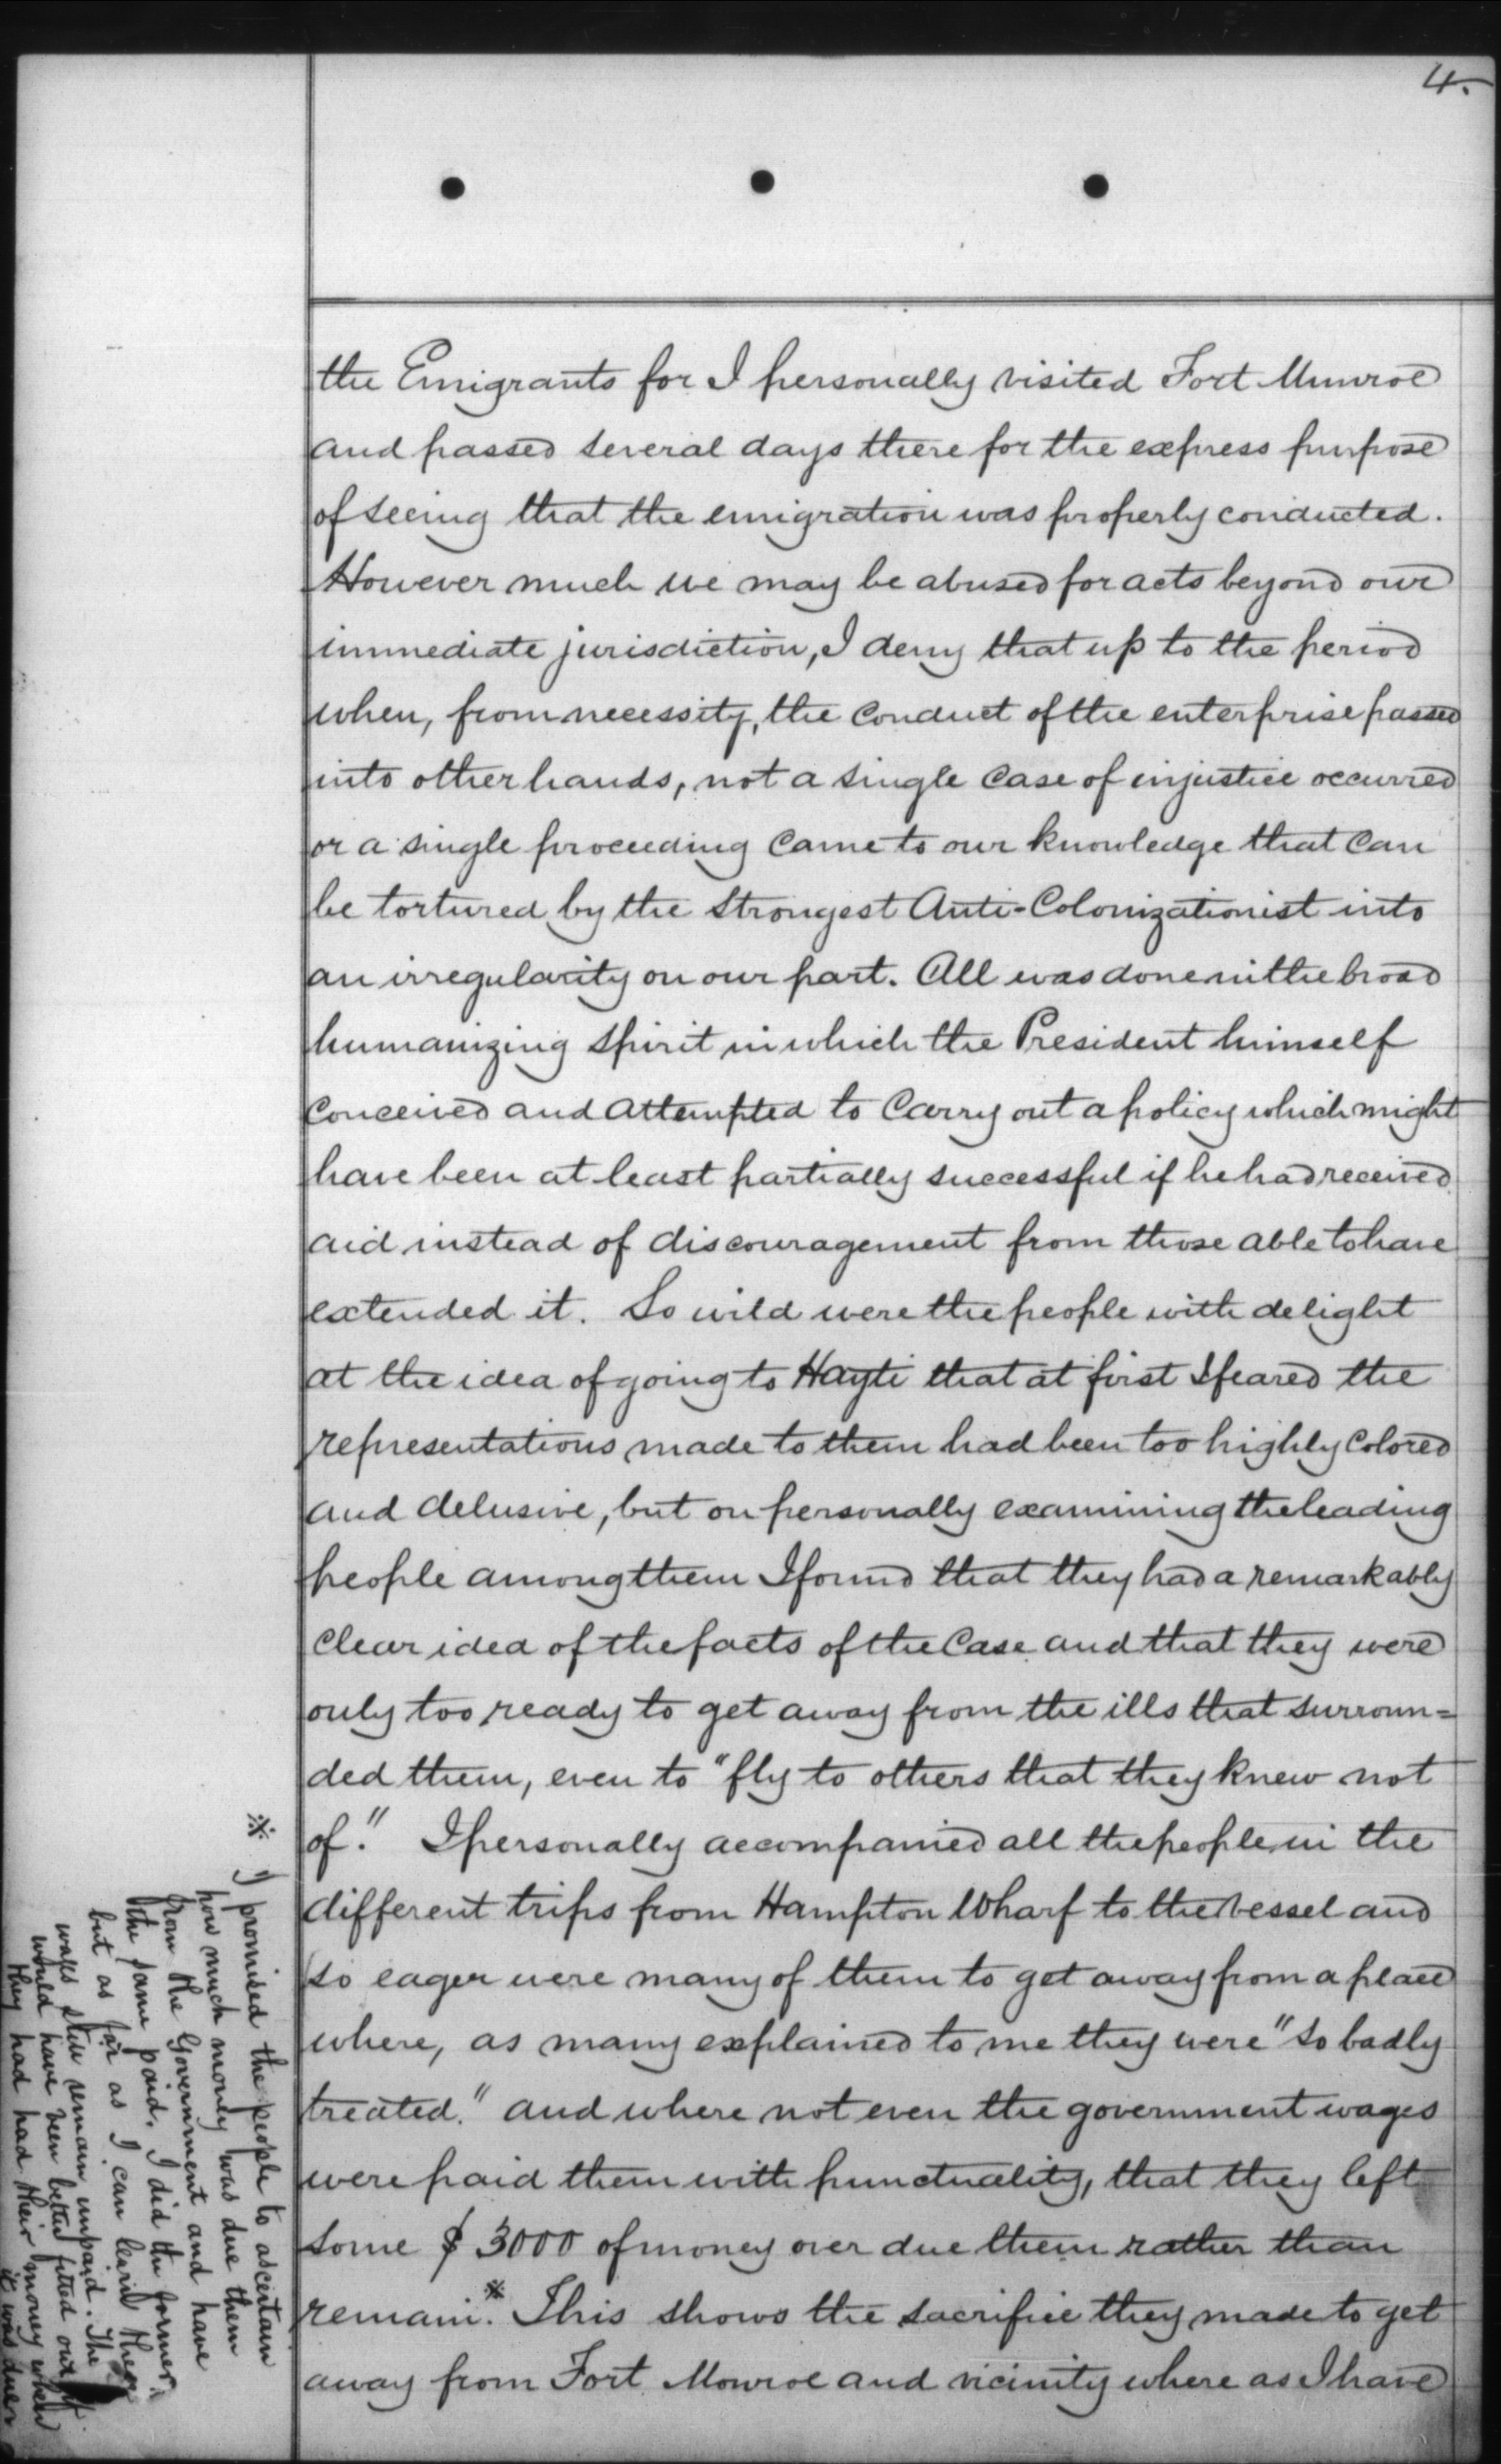 4.
the Emigrants for I personally visited Fort Munroe
and passed several days there for the express purpose
of seeing that the emigration was properly conducted.
However much we may be abused for acts beyond our
immediate jurisdiction, I deny that up to the period
when, from necessity, the conduct of the enterprise passed
into other hands, not a single case of injustice occurred
or a single proceeding came to our knowledge that can
be tortured by the strongest Anti-Colonizationist into
an irregularity on our part. All was done in the broad
humanizing spirit in which the President himself
conceived and attempted to carry out a policy which might
have been at least partially successful if he had received
aid instead of discouragement from those able to have
extended it. So wild were the people with delight
at the idea of going to Hayti that at first I feared the
representations made to them had been too highly colored
and delusive, but on personally examining the leading
people among them I found that they had a remarkably
clear idea of the facts of the case and that they were
only too ready to get away from the ills that surroun=
ded them, even to "fly to others that they knew not
of." I personally accompanied all the people in the
different trips from Hampton Wharf to the vessel and
so eager were many of them to get away from a place
where, as many explained to me they were "so badly
treated." and where not even the government wages
were paid them with punctuality, that they left
some $ 3000 of money over due them rather than
remain.※ This shows the sacrifice they made to get
away from Fort Monroe and vicinity where as I have
※ I promised the people to ascertain
how much money was due them
from the Government and have
the same paid. I did the former
but as far as I can learn the
wages still remain unpaid. The
would have been better fitted out if
they had had their money when
it was due